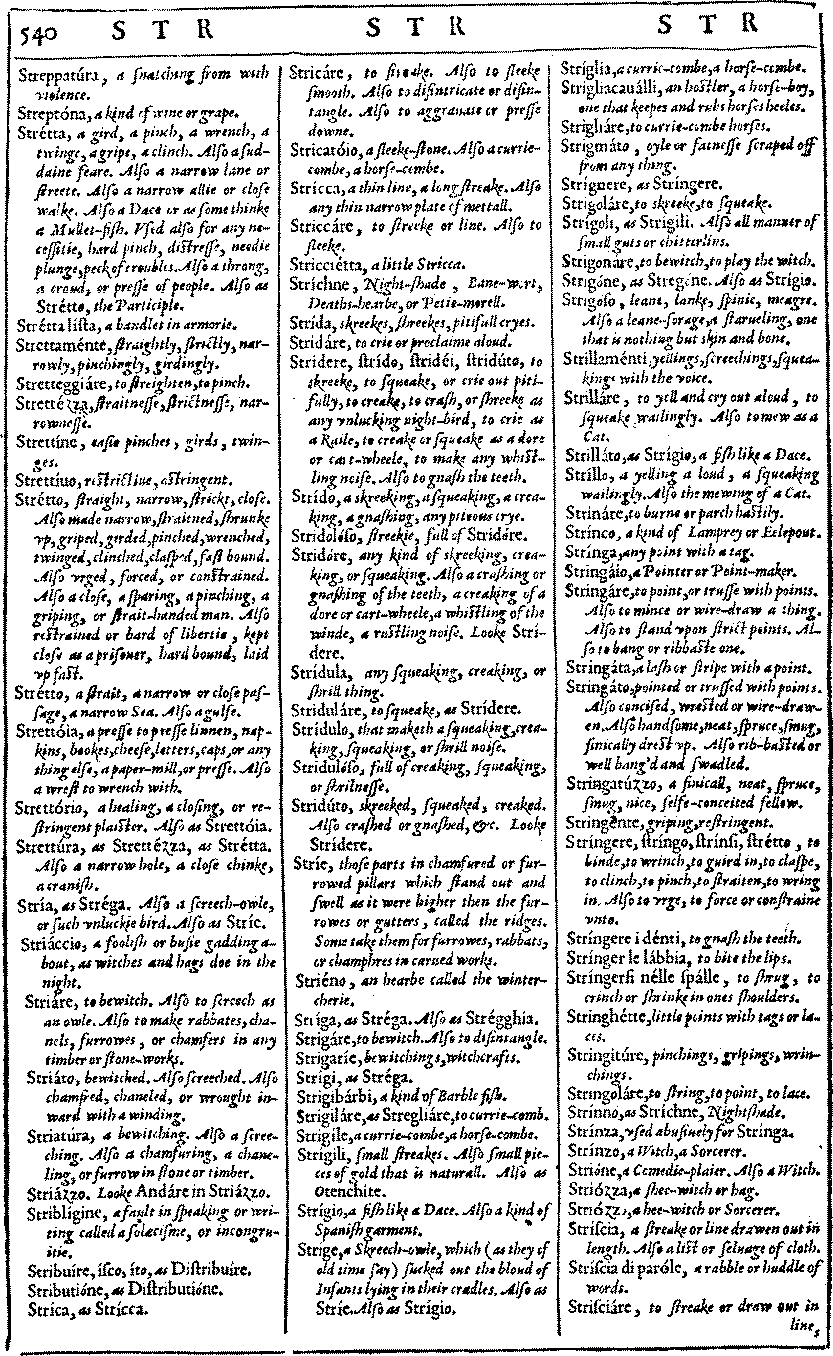 540 S T R S T R S T R
Streppatúra, a ſnatching from with
violence.
Streptóna, a kind of wine or grape.
Strétta, a gird, a pinch, a wrench, a
twinge, a gripe, a clinch. Alſo a ſud-
daine feare. Alſo a narrow lane or
ſtreete. Alſo a narrow allie or cloſe
walke. Alſo a Dace or as ſome thinke
a Mullet-fiſh. Vſed alſo for any ne-
ceſſitie, hard pinch, diſtreſſe, needie
plunge, peck of troubles. Alſo a throng,
a croud, or preſſe of people. Alſo as
Strétto, the Participle.
Strétta líſta, a bandlet in armorie.
Strettaménte, ſtraightly, ſtrictly, nar-
rowly, pinchingly, girdingly.
Stretteggiáre, to ſtreighten, to pinch.
Strettézza, ſtraitneſſe, ſtrictneſſe, nar-
rowneſſe.
Strettíne, eaſie pinches, girds, twin-
ges.
Strettíuo, reſtrictiue, aſtringent.
Strétto, ſtraight, narrow, ſtrickt, cloſe.
Alſo made narrow, ſtraitned, ſhrunke
vp, griped, girded, pinched, wrenched,
twinged, clinched, claſped, faſt bound.
Alſo vrged, forced, or conſtrained.
Alſo a cloſe, a ſparing, a pinching, a
griping, or ſtrait-handed man. Alſo
reſtrained or bard of libertie, kept
cloſe as a priſoner, hard bound, laid
vp faſt.
Strétto, a ſtrait, a narrow or cloſe paſ-
ſage, a narrow Sea. Alſo a gulfe.
Strettóia, a preſſe to preſſe linnen, nap-
kins, bookes, cheeſe, letters, caps, or any
thing elſe, a paper-mill, or preſſe. Alſo
a wreſt to wrench with.
Strettório, a healing, a cloſing, or re-
ſtringent plaiſter. Alſo as Strettóia.
Strettúra, as Strettézza, as Strétta.
Alſo a narrow hole, a cloſe chinke,
a craniſh.
Stría, as Stréga. Alſo a ſcreech-owle,
or ſuch vnluckie bird. Alſo as Stríc.
Striáccio, a fooliſh or buſie gadding a-
bout, as witches and hags doe in the
night.
Striáre, to bewitch. Alſo to ſcreech as
an owle. Alſo to make rabbates, cha-
nels, furrowes, or chamfers in any
timber or ſtone-works.
Striáto, bewitched. Alſo ſcreeched. Alſo
chamfred, chaneled, or wrought in-
ward with a winding.
Striatúra, a bewitching. Alſo a ſcree-
ching. Alſo a chamfuring, a chane-
ling, or furrow in ſtone or timber.
Striázzo. Looke Andáre in Striázzo.
Stribligíne, a fault in ſpeaking or wri-
ting called a ſolaciſme, or incongru-
itie.
Stribuíre, íſco, íto, as Diſtribuíre.
Stributióne, as Diſtributióne.
Strica, as Strícca.
Stricáre, to ſtreake. Alſo to ſleeke
ſmooth. Alſo to diſintricate or diſin-
tangle. Alſo to aggrauate or preſſe
downe.
Stricatóio, a ſleeke-ſtone. Alſo a currie-
combe, a horſe-combe.
Strícca, a thin line, a long ſtreake. Alſo
any thin narrow plate of mettall.
Striccáre, to ſtreeke or line. Alſo to
ſleeke.
Stricciétta, a little Strícca.
Stríchne, Night-ſhade, Bane-wort,
Deaths-hearbe, or Petie-morell.
Strída, skreekes, ſhreekes, pitifull cryes.
Stridáre, to crie or proclaime aloud.
Strídere, ſtrído, ſtridéi, ſtridúto, to
skreeke, to ſqueake, or crie out piti-
fully, to creake, to craſh, or ſhreeke as
any vnlucking night-bird, to crie as
a Raile, to creake or ſqueake as a dore
or cart-wheele, to make any whiſt-
ling noiſe. Alſo to gnaſh the teeth.
Strído, a skreeking, a ſqueaking, a crea-
king, a gnaſhing, any pitious crye.
Stridoléſo, ſtreekie, full of Stridóre.
Stridóre, any kind of skreeking, crea-
king, or ſqueaking. Alſo a craſhing or
gnaſhing of the teeth, a creaking of a
dore or cart-wheele, a whiſtling of the
winde, a ruſtling noiſe. Looke Strí-
dere.
Strídula, any ſqueaking, creaking, or
ſhrill thing.
Striduláre, to ſqueake, as Strídere.
Strídulo, that maketh a ſqueaking, crea-
king, ſqueaking, or ſhrill noiſe.
Stridulóſo, full of creaking, ſqueaking,
or ſhrilneſſe.
Stridúto, skreeked, ſqueaked, creaked.
Alſo craſhed or gnaſhed, &c. Looke
Strídere.
Stríe, thoſe parts in chamfured or fur-
rowed pillars which ſtand out and
ſwell as it were higher then the fur-
rowes or gutters, called the ridges.
Some take them for furrowes, rabbats,
or champhres in carued works.
Striéno, an hearbe called the winter-
cherie.
Stríga, as Stréga. Alſo as Strégghia.
Strigáre, to bewitch. Alſo to diſintangle.
Strigaríe, bewitchings, witchcrafts.
Strígi, as Stréga.
Strigibárbi, a kind of Barble fiſh.
Strigiláre, as Stregliáre, to currie-comb.
Strígile, a currie-combe, a horſe-combe.
Strígili, ſmall ſtreakes. Alſo ſmall pie-
ces of gold that is naturall. Alſo as
Otenchite.
Strígio, a fiſh like a Dace. Alſo a kind of
Spaniſh garment.
Stríge, a Skreech-owle, which (as they of
old time ſay) ſucked out the bloud of
Infants lying in their cradles. Alſo as
Stríe. Alſo as Strígio.
Stríglia, a currie-combe, a horſe-combe.
Strigliacauálli, an hoſtler, a horſe-boy,
one that keepes and rubs horſes heeles.
Strigliáre, to currie-combe horſes.
Strigmáto, oyle or fatneſſe ſcraped off
from any thing.
Strígnere, as Stríngere.
Strigoláre, to skreeke, to ſqueake.
Strígoli, as Strígili. Alſo all manner of
ſmall guts or chitterlins.
Strigonáre, to bewitch, to play the witch.
Strigóne, as Stregóne. Alſo as Strígio.
Strigóſo, leane, lanke, ſpinie, meagre.
Alſo a leane-forage, a ſtarueling, one
that is nothing but skin and bone.
Strillaménti, yellings, ſcreechings, ſquea-
kings with the voice.
Strilláre, to yell and cry out aloud, to
ſqueake wailingly. Alſo to mew as a
Cat.
Strilláto, as Strígio, a fiſh like a Dace.
Stríllo, a yelling a loud, a ſqueaking
wailingly. Alſo the mewing of a Cat.
Strináre, to burne or parch haſtily.
Strínco, a kind of Lamprey or Eelepout.
Strínga, any point with a tag.
Stringáio, a Pointer or Point-maker.
Stringáre, to point, or truſſe with points.
Alſo to mince or wire-draw a thing.
Alſo to ſtand vpon ſtrict points. Al-
ſo to bang or ribbaſte one.
Stringáta, a laſh or ſtripe with a point.
Stringáto, pointed or truſſed with points.
Alſo conciſed, wreſted or wire-draw-
en. Alſo handſome, neat, ſpruce, ſmug,
finically dreſt vp. Alſo rib-baſted or
well bang'd and ſwadled.
Stringatúzzo, a finicall, neat, ſpruce,
ſmug, nice, ſelfe-conceited fellow.
Stringénte, griping, reſtringent.
Stríngere, ſtríngo, ſtrínſi, ſtrétto, to
binde, to wrinch, to guird in, to claſpe,
to clinch, to pinch, to ſtraiten, to wring
in. Alſo to vrge, to force or conſtraine
vnto.
Stríngere i dénti, to gnaſh the teeth.
Strínger le lábbia, to bite the lips.
Stríngerſi nélle ſpálle, to ſhrug, to
crinch or ſhrinke in ones ſhoulders.
Stringhétte, little points with tags or la-
ces.
Stringitúre, pinchings, gripings, wrin-
chings.
Stringoláre, to ſtring, to point, to lace.
Strínno, as Stríchne, Nightſhade.
Strínza, vſed abuſiuely for Strínga.
Strínzo, a Witch, a Sorcerer.
Strióne, a Comedie-plaier. Alſo a Witch.
Striózza, a ſhee-witch or hag.
Striózzo, a hee-witch or Sorcerer.
Stríſcia, a ſtreake or line drawen out in
length. Alſo a liſt or ſeluage of cloth.
Stríſcia di paróle, a rabble or huddle of
words.
Striſciáre, to ſtreake or draw out in
line,